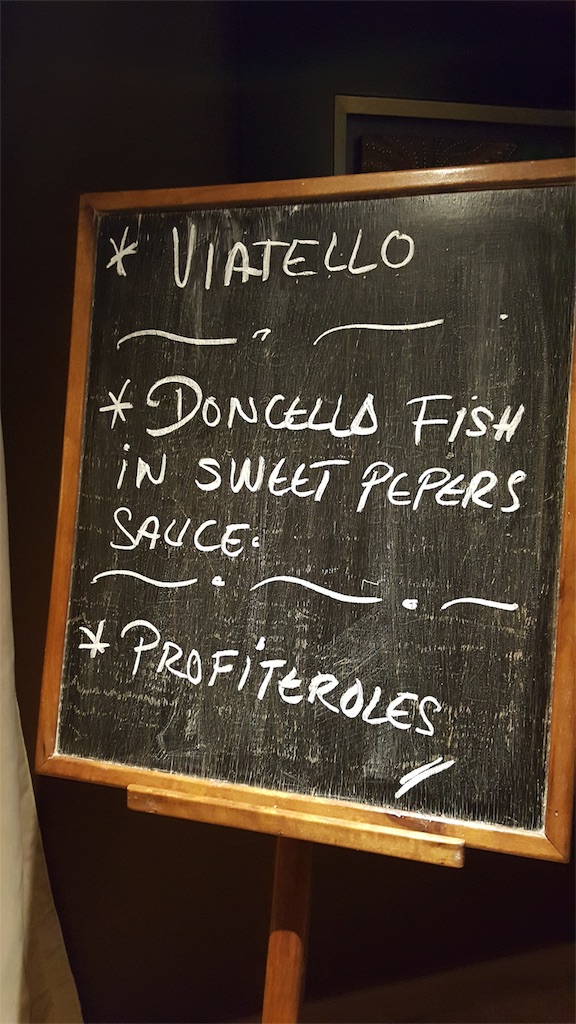 * VIATELLO
* DONCELLA FISH
IN SWEET PEPERS
SAUCE.
* PROFITEROLES